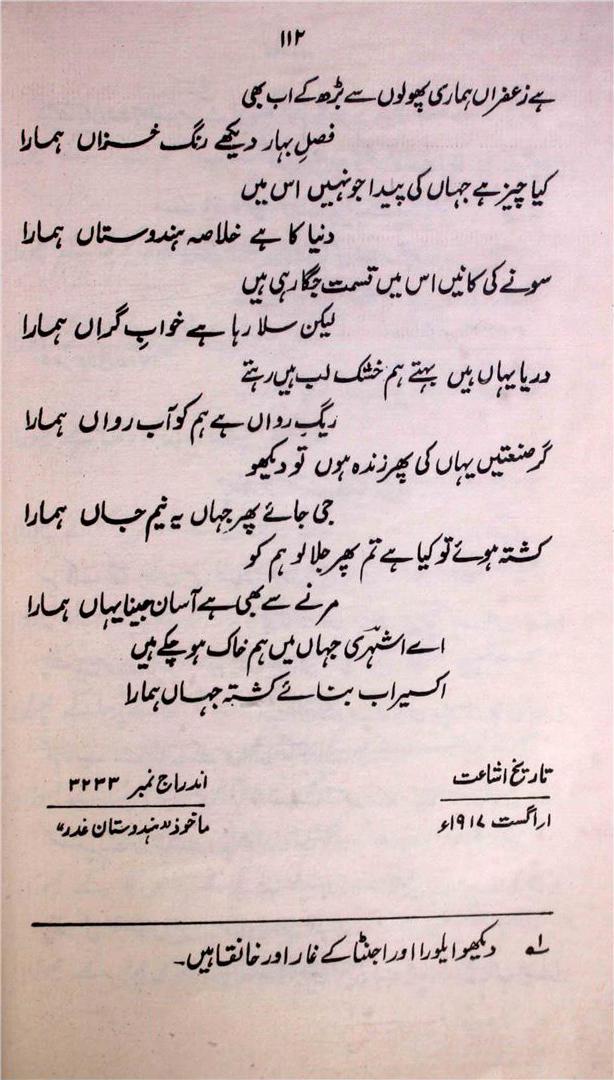 ۱۱۲
ہے زعفراں ہماری پھولوں سے بڑھ کے اب بھی
فصلِ بہار دیکھے رنگ خزاں ہمارا
کیا چیز ہے جہاں کی پیدا جو نہیں اس میں
دنیا کا ہے خلاصہ ہندوستاں ہمارا
سونے کی کانیں اس میں قسمت جگا رہی ہیں
لیکن سلا رہا ہے خوابِ گراں ہمارا
دریا یہاں ہیں بہتے ہم خشک لب ہیں رہتے
ریگِ رواں ہے ہم کو آب رواں ہمارا
گر صنعتیں یہاں کی پھر زندہ ہوں تو دیکھو
جی جائے پھر جہاں یہ نیم جاں ہمارا
کشتہ ہوئے تو کیا ہے تم پھر جلا لو ہم کو
مرنے سے بھی ہے آسان جینا یہاں ہمارا
اے اشہری جہاں میں ہم خاک ہو چکے ہیں
اکسیر اب بنائے کشتہ جہاں ہمارا
تاریخ اشاعت
اندراج نمبر ۳۲۳۳
۱ر اگست ۱۹۱۷ء
ماخوذ "ہندوستان غدر"
۱ہ دیکھو ایلورا اور اجنٹا کے غار اور خانقاہیں۔